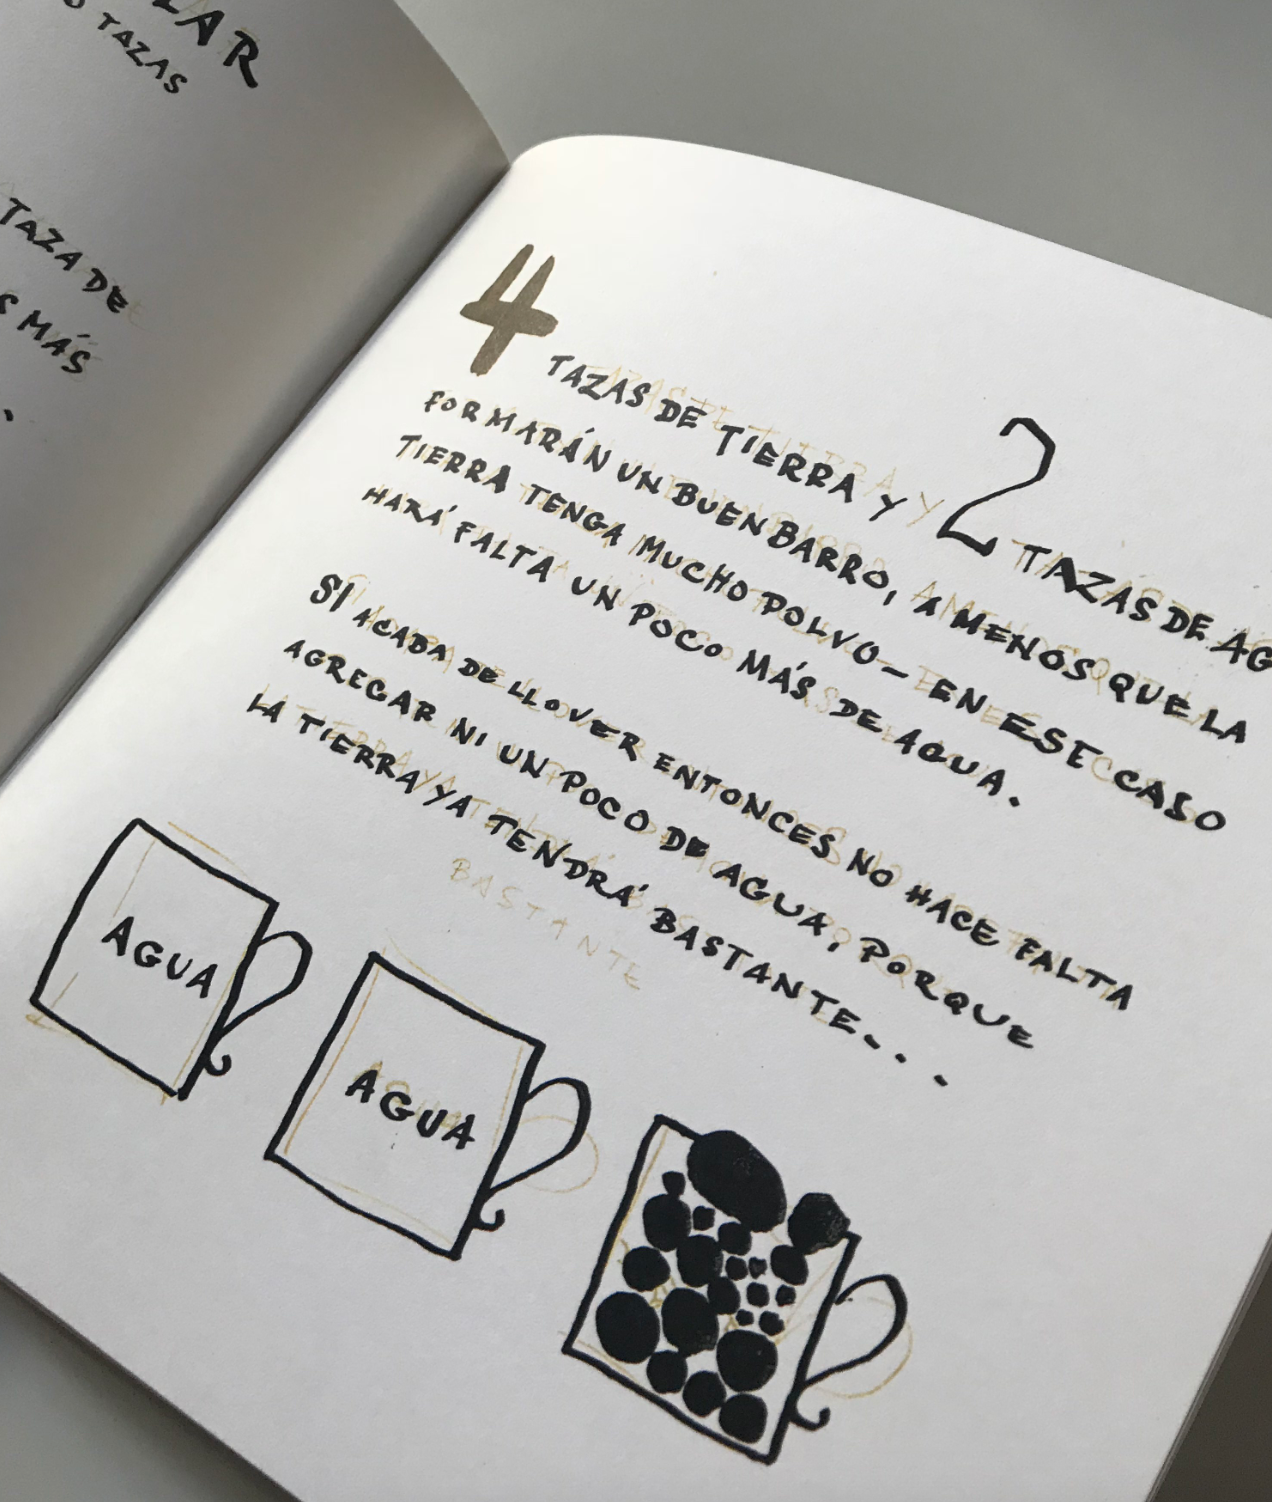 TAZAS
TAZA DE
MÁS
4 TAZAS DE TIERRA Y 2 TAZAS DE
FORMARÁN UN BUEN BARRO, A MENOS QUE LA
TIERRA TENGA MUCHO POLVO - EN ESE CASO
HARÁ FALTA UN POCO MÁS DE AGUA.
SI ACABA DE LLOVER ENTONCES NO HACE FALTA
AGREGAR NI UN POCO DE AGUA, PORQUE
LA TIERRA YA TENDRÁ BASTANTE...
BASTANTE
AGUA
AGUA